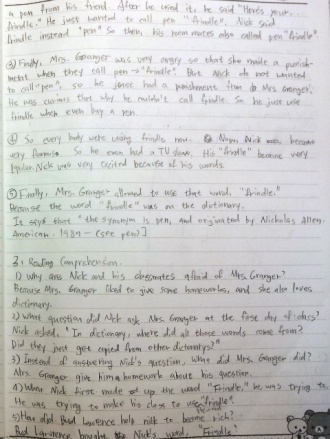 a pen from his friend. After he used it, he said "Here's your...
frindle." He just wanted to call pen "frindle". Nick said
frindle instead "pen" So then, his room mates also called pen "frindle".
③ Finally, Mrs. Granger was very angry so that she made a punish-
ment when they call pen → "frindle". But Nick do not wanted
to call "pen", so he joree had a punishment from Mrs Granger.
He was curious that why he couldn't call frindle. So he just use
frindle when even buy a pen.
④ So every body were using frindle now. Nick became
very famous. So he even had a TV show. His "frindle" became very
Nick was very excited because of his words.
⑤ Finally, Mrs. Granger allowed to use that word, "frindle."
Because the word "frindle" was on the dictionary.
It says that "the synonym is pen, and originated by Nicholas Allen,
American, 1987 - (see pen)]
3. Reading Comprehension.
1) Why are Nick and his classmates afraid of Mrs. Granger?
Because Mrs. Granger liked to give some homeworks, and she also loves
dictionary.
2) What question did Nick ask Mrs. Granger at the first day of class?
Nick asked, "In dictionary, where did all those words come from?
Did they just get copied from other dictionarys?"
3) Instead of answering Nick's question, what did Mrs. Granger did?
Mrs. Granger give him a homework about his question.
4) When Nick first made up the word "Frindle," he was trying to
He was trying to make his class to use "frindle".
5) How did Bud Lawrence help nick to become rich?
Bud Lawrence bought Nick's word, "Frindle"